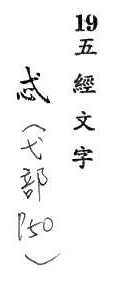 19五經文字
忒(弋部P50)